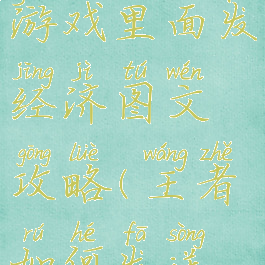 游戏里面发
jīng jì tú wén
经济图文
gōng lüè wáng zhě
攻略(王者
rú hé fā sòng
如何发送